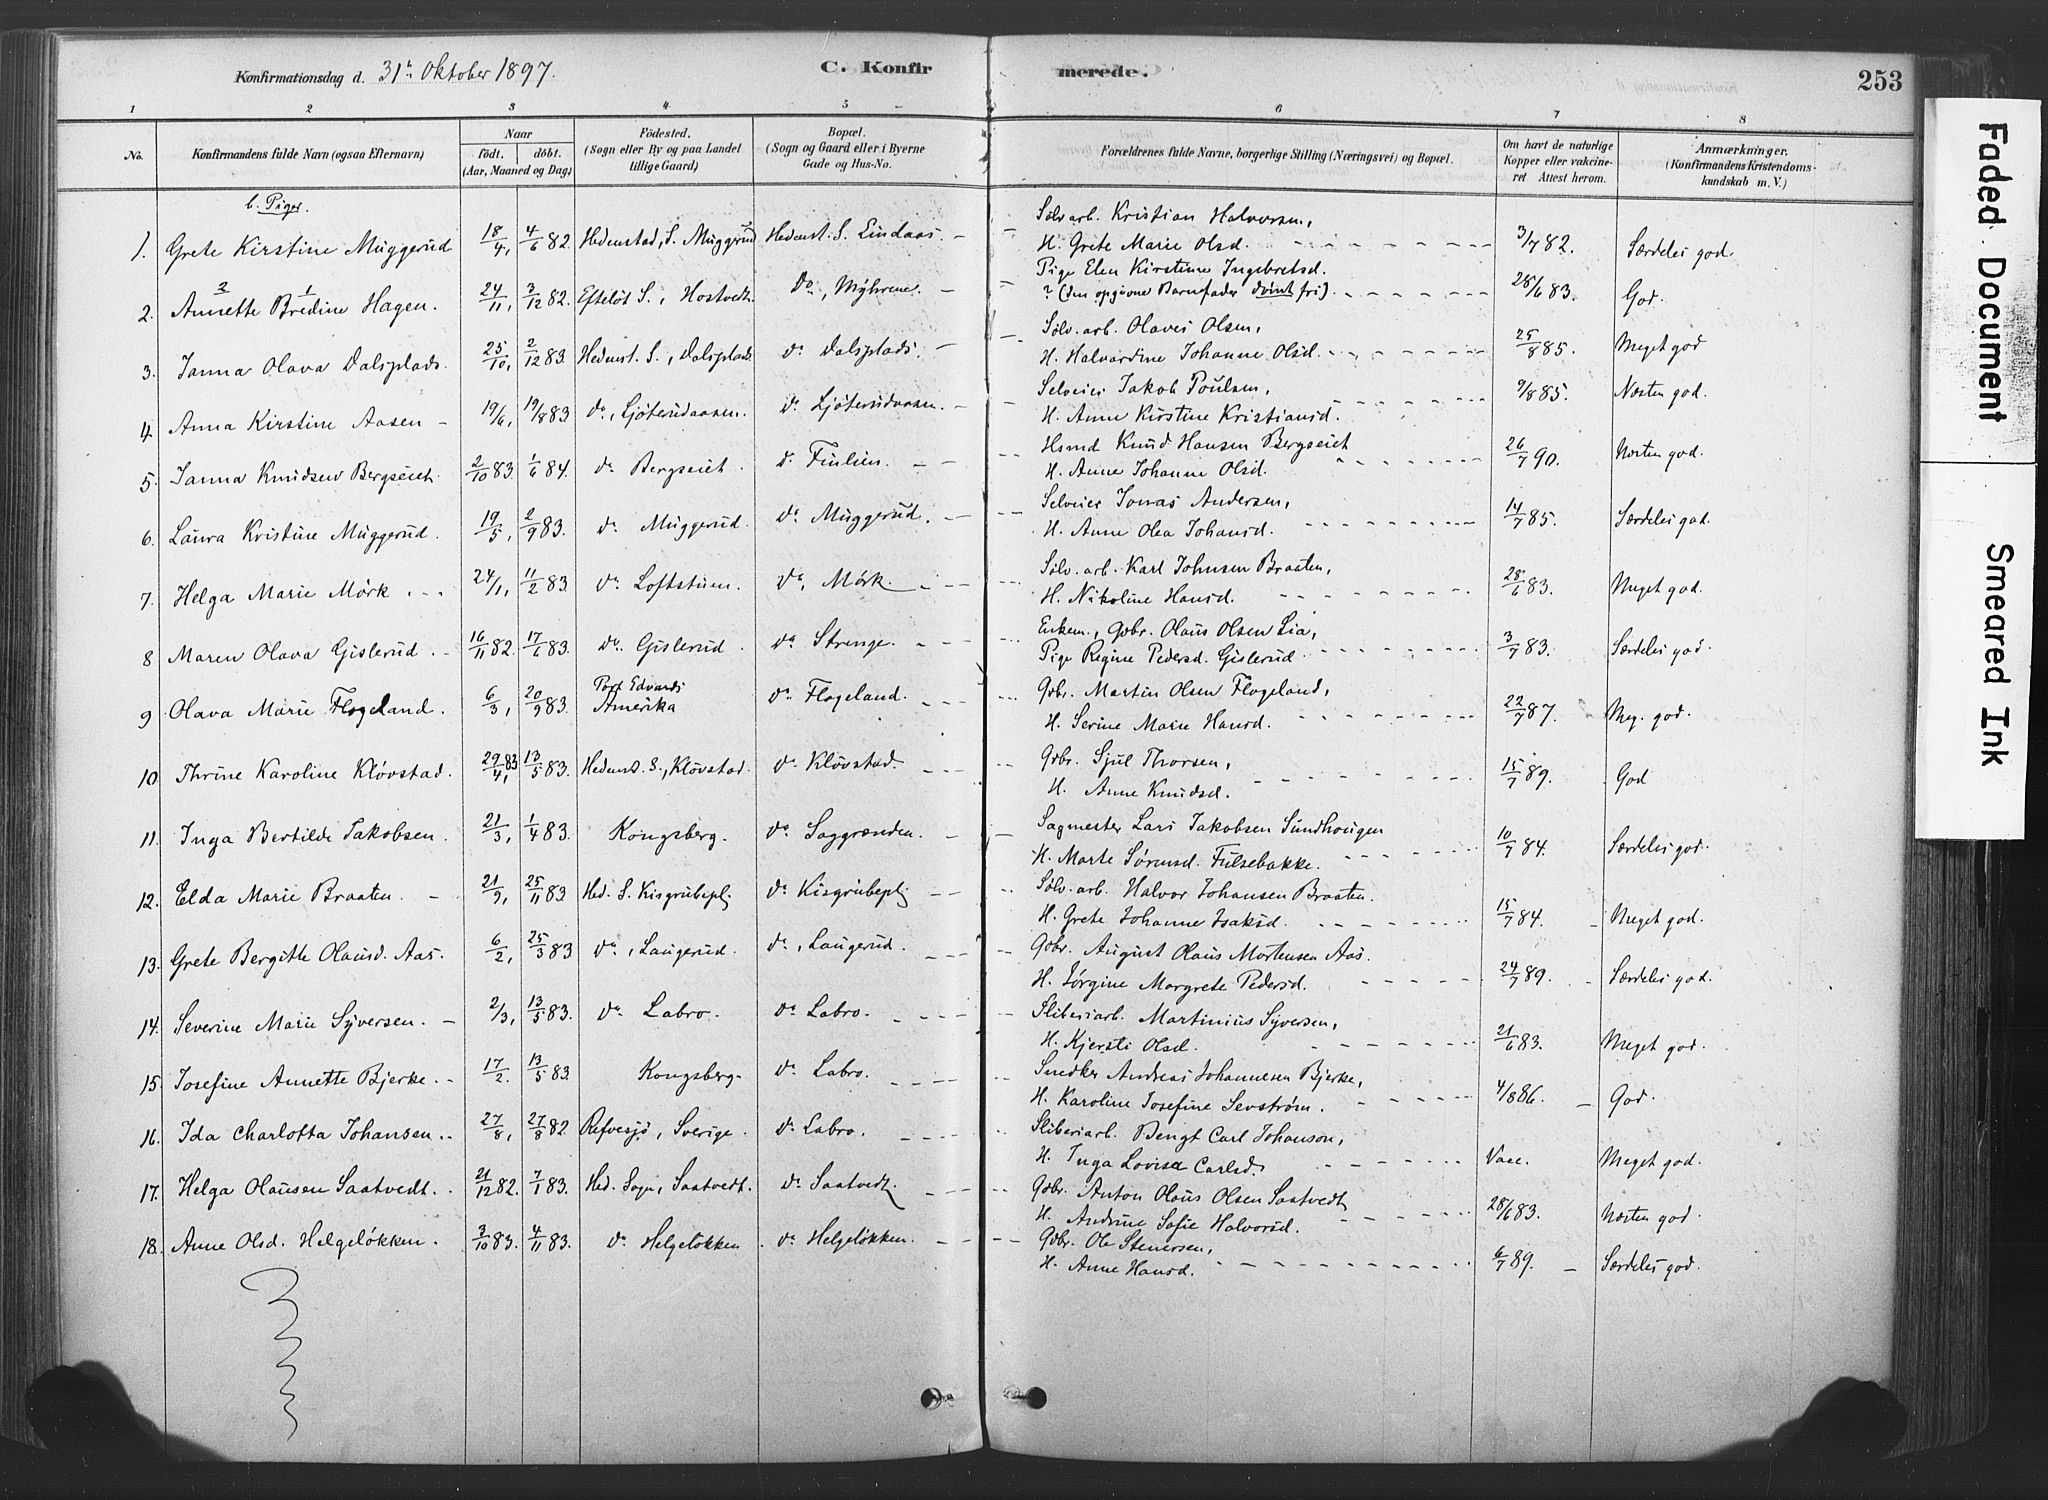 Konfirmationsdag d. 31te Oktober 1897. C. Konfirmerede. 253
1 2 3 4 5 6 7 8
No. Konfirmandens fulde Navn (ogsaa Efternavn) Naar Födt. döbt. (Aar, Maaned og Dag) Födested. (Sogn eller By og paa Landet tillige Gaard) Bopæl. (Sogn og Gaard eller i Byerne Gade og Hus-No. Forældrenes fulde Navne, borgerlige Stilling (Næringsvei) og Bopæl. Om havt de naturlige Kopper eller vakcineret Attest herom. Anmærkninger. (Konfirmandens Kristendomskundskab m. V.)
b. Piger.
1. Grete Kirstine Muggerud 18/4, 4/6 82. Hedenstad, S. Muggerud Hedenst. S. Lindaas. Sölvarb. Kristian Halvorsen,
H. Grete Marie Olsd. 3/7 82. Særdeles god.
2. Annette 2 Bredine 1 Hagen. 24/11, 3/12 82. Efteløt S., Hostvedt. Do, Myhrene. Pige Elen Kirstine Ingebretsd.
? (den opgivne Barnefader dömt fri). 28/6 83. God.
3. Janna Olava Dalsplads. 25/10, 2/12 83. Hedenst. S., Dalsplads. do Dalsplads. Sölv.arb. Olaves Olsen,
H. Halvardine Johanne Olsd. 25/8 85. Meget god
4. Anna Kirstine Aasen 19/6, 19/8 83 do, Ljöterudaasen. do Ljöterudaasen. Selveier Jakob Poulsen,
H. Anne Kirstine Kristiansd. 9/8 85. Næsten god.
5. Janna Knudsen Bergseiet 2/10 83. 1/6 84. do Bergseiet. do Hsmd Knud Hansen Bergseiet
H. Anne Johanne Olsd. 26/7 90. Næsten god.
6. Laura Kristine Muggerud. 19/5, 2/9 83. do Muggerud. do Muggerud. Selveier Jonas Andersen,
H. Anne Olea Johansd. 14/7 85. Særdeles god.
7. Helga Marie Mörk. 24/1, 11/2 83. do Loftstuen. do, Mörk. Sölv.arb. Karl Johnsen Braaten,
H. Nikoline Hansd. 28/6 83. Meget god.
8 Maren Olava Gislerud. 16/11 82. 17/6 83. do Gislerud do Strenge. Enkem., Gbr. Olaus Olsen Lia,
Pige Regine Pedersd. Gislerud 3/7 83. Særdeles god.
9 Olava Marie Flogeland. 6/3, 20/9 83. Port Edvards Amerika do Flogeland. Gbr. Martin Olsen Flogeland,
H. Serine Marie Hansd. 22/7 87. Meg. god.
10 Thrine Karoline Klövstad. 29/4, 83 13/5 83. Hedenst. S., Klövstad. do Klövstad. Gbr. Sjul Thorsen,
H. Anne Knudsd. 15/7 89. God
11. Inga Bertilde Jakobsen. 21/3, 1/4 83. Kongsberg. do Saggrænden. Sagmester Lars Jakobsen Sundhougen
H. Marte Sörensd. Fulsebakke. 10/7 84. Særdeles god.
12. Elda Marie Braaten. 21/9, 25/11 83 Hed. S. Kisgrubepl. do Kisgrubepl. Sölv.arb. Halvor Johansen Braaten.
H. Grete Johanne Isaksd. 15/7 84. Meget god.
13. Grete Bergitte Olausd. Aas. 6/2, 25/3 83 do, Laugerud. do, Laugerud. Gbr. August Olaus Mortensen Aas.
H. Jørgine Margrete Pedersd. 24/7 89. Særdeles god.
14. Severine Marie Syversen. 2/3, 13/5 83. do Labro. do Labro. Sliberiarb. Martinius Syversen,
H. Kjersti Olsd. 21/6 83. Meget god.
15 Josefine Annette Bjerke. 17/2. 13/5 83. Kongsberg. do Labro. Snedker Andreas Johannesen Bjerke,
H. Karoline Josefine Sevström. 4/8 86. God.
16. Ida Charlotta Johansen. 27/8, 27/8 82. Refvesjö, Sverige. do Labro. Sliberiarb. Bengt Carl Johanson,
H. Inga Lovisa Carlsd. Vacc. Meget god.
17. Helga Olausen Saatvedt. 21/12 82. 7/1 83. Hed. Sogn, Saatvedt. do Saatvedt. Gbr. Anton Olaus Olsen Saatvedt
H. Andrine Sofie Halvorsd. 28/6 83. Næsten god.
18. Anne Olsd. Helgelökken. 3/10 83. 4/11 83. do Helgelökken do Helgelökken. Gbr. Ole Stenersen,
H. Anne Hansd. 6/7 89. Særdeles god.
Faded Document
Smeared Ink